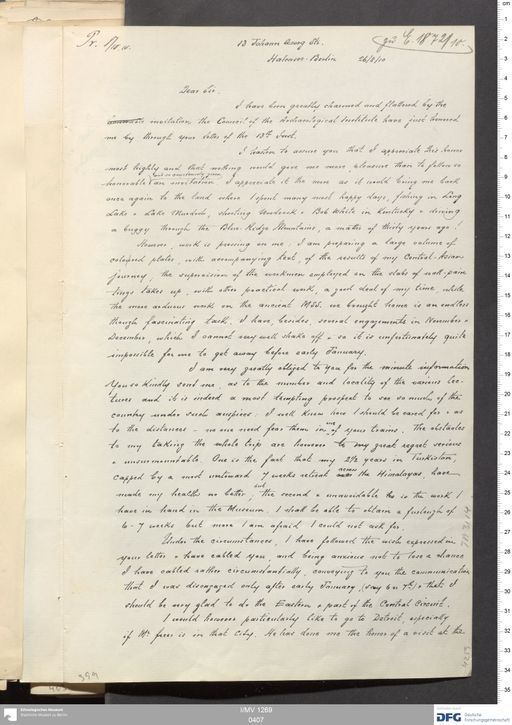 13 Johann Georg Str.
Halensee-Berlin 26/8/10
Dear Sir.
I have been greatly charmed and flattered by the
invitation, the Council of the Archaeological Institute have just honoured
me by through your letter of the 13th Inst.
I hasten to assure you that I appreciate this honour
most highly and that nothing would give me more pleasure than to follow so
honourable an invitation. I appreciate it the more as it would bring me back
once again to the land where I spent many most happy days, fishing in Long
Lake + Lake , shooting Woodcock + Bob White in Kentucky + driving
a buggy through the Blue Ridge Mountains, a matter of thirty years ago!
However, work is pressing on me: I am preparing a large volume of
coloured plates, with accompanying text, of the results of my Central-Asian
journey, the supervision of the workmen employed on the slabs of wall-pain-
tings takes up, with other practical work, a good deal of my time, while
the more arduous work on the ancient MSS. we brought home is an endless
though fascinating task. I have, besides, several engagements in November +
December, which I cannot very well shake off + so it is unfortunately quite
impossible for me to get away before early January.
I am very greatly obliged to you for the minute information
you so kindly send me, as to the number and locality of the various lec-
tures and it is indeed a most tempting prospect to see so much of the
country under such auspices: I well know how I should be cared for + as
to the distances – no one need fear them in one of your trains. The obstacles
to my taking the whole trip are however to my great regret serious
+ unsurmountable. One is the fact that my 2½ years in Turkistan,
capped by a most untoward 7 weeks retreat across the Himalayas, have
made my health no better, but the second + unavoidable is the work I
have in hand in the Museum. I shall be able to obtain a furlough of
6-7 weeks but more I am afraid I could not ask for.
Under the circumstances, I have followed the wish expressed in
your letter + have cabled you, and being anxious not to lose a chance
I have cabled rather circumstantially, conveying to you the communication
that I was disengaged only after early January (say 6 or 7th) + that I
should be very glad to do the Eastern + part of the Central Circuit.
I would however particularly like to go to Detroit, especially
if Mr Freer is in that City. He has done me the honor of a visit at the
399
4259
Ethnologisches Museum
Staatliche Museen zu Berlin
I/MV 1269
0407
DFG
Deutsche
Forschungsgemeinschaft